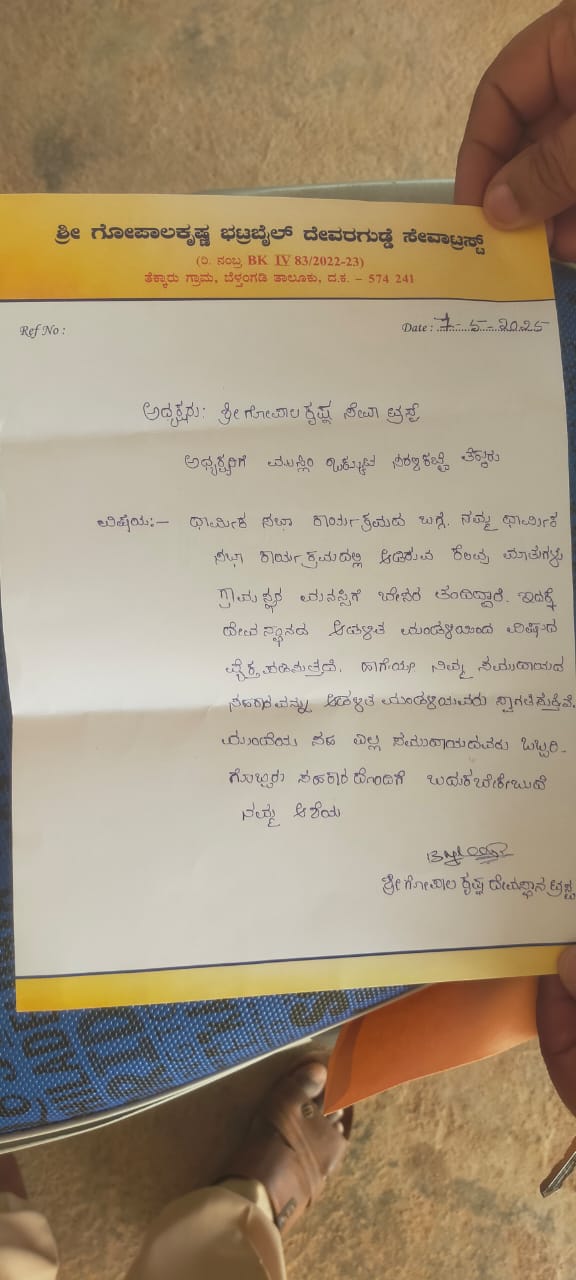 ಶ್ರೀ ಗೋಪಾಲಕೃಷ್ಣ ಭಟ್ರಬೈಲ್ ದೇವರಗುಡ್ಡೆ ಸೇವಾಟ್ರಸ್ಟ್
(ರಿ. ನಂಬ್ರ BK IV 83/2022-23)
ತೆಕ್ಕಾರು ಗ್ರಾಮ, ಬೆಳ್ತಂಗಡಿ ತಾಲೂಕು, ದ.ಕ. – 574 241
Ref No :
Date : 7-5-2025
ಅಧ್ಯಕ್ಷರು: ಶ್ರೀ ಗೋಪಾಲ ಕೃಷ್ಣ ಸೇವಾ ಟ್ರಸ್ಟ್
ಅಧ್ಯಕ್ಷರಿಗೆ ಮುಸ್ಲಿಂ ಒಕ್ಕೂಟ ಸರಳಿಕಟ್ಟೆ ತೆಕ್ಕಾರು
ವಿಷಯ:– ಧಾರ್ಮಿಕ ಸಭಾ ಕಾರ್ಯಕ್ರಮದ ಬಗ್ಗೆ. ನಮ್ಮ ಧಾರ್ಮಿಕ
ಸಭಾ ಕಾರ್ಯಕ್ರಮದಲ್ಲಿ ಆಡಿರುವ ಕೆಲವು ಮಾತುಗಳು
ಗ್ರಾಮಸ್ಥರ ಮನಸ್ಸಿಗೆ ಬೇಸರ ತಂದಿದ್ದಾರೆ. ಇದಕ್ಕೆ
ದೇವಸ್ಥಾನದ ಆಡಳಿತ ಮಂಡಳಿಯಿಂದ ವಿಷಾದ
ವ್ಯೆಕ್ತಪಡಿಸುತ್ತದೆ. ಹಾಗೆಯೇ ನಿಮ್ಮ ಸಮುದಾಯದ
ಸಹಕಾರವನ್ನು ಆಡಳಿತ ಮಂಡಳಿಯವರು ಸ್ವಾಗತಿಸುತ್ತೇವೆ.
ಮುಂದೆಯು ಸಹ ಎಲ್ಲ ಸಮುದಾಯದವರು ಒಬ್ಬರಿ-
ಗೊಬ್ಬರು ಸಹಕಾರದೊಂದಿಗೆ ಬದುಕಬೇಕೆಂಬುದೆ
ನಮ್ಮ ಆಶಯ
ಶ್ರೀ ಗೋಪಾಲ ಕೃಷ್ಣ ದೇವಸ್ಥಾನ ಟ್ರಸ್ಟ್